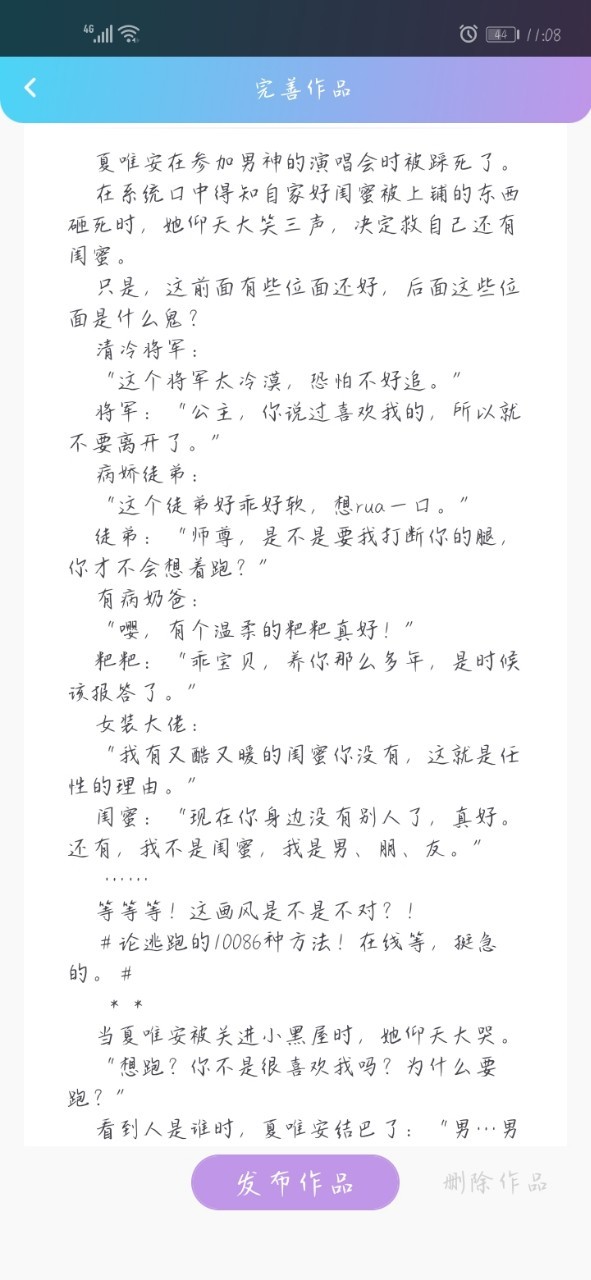 4G 44 11:08
完善作品
夏唯安在参加男神的演唱会时被踩死了。
在系统口中得知自家好闺蜜被上铺的东西
砸死时，她仰天大笑三声，决定救自己还有
闺蜜。
只是，这前面有些位面还好，后面这些位
面是什么鬼？
清冷将军：
"这个将军太冷漠，恐怕不好追。"
将军："公主，你说过喜欢我的，所以就
不要离开了。"
病娇徒弟：
"这个徒弟好乖好软，想rua一口。"
徒弟："师尊，是不是要我打断你的腿，
你才不会想着跑？"
有病奶爸：
"嘤，有个温柔的粑粑真好！"
粑粑："乖宝贝，养你那么多年，是时候
该报答了。"
女装大佬：
"我有又酷又暖的闺蜜你没有，这就是任
性的理由。"
闺蜜："现在你身边没有别人了，真好。
还有，我不是闺蜜，我是男、朋、友。"
……
等等等！这画风是不是不对？！
#论逃跑的10086种方法！在线等，挺急
的。#
* *
当夏唯安被关进小黑屋时，她仰天大哭。
"想跑？你不是很喜欢我吗？为什么要
跑？"
看到人是谁时，夏唯安结巴了："男…男
发布作品 删除作品